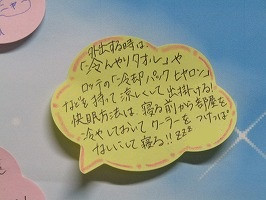 外出する時は、
「冷んやりタオル」や
ロッテの「冷却パック ヒヤロン」
などを持って涼しくして出掛ける!
快眠方法は、寝る前から部屋を
冷やしておいて クーラーを つけっぱ
ないにして寝る!! zzz